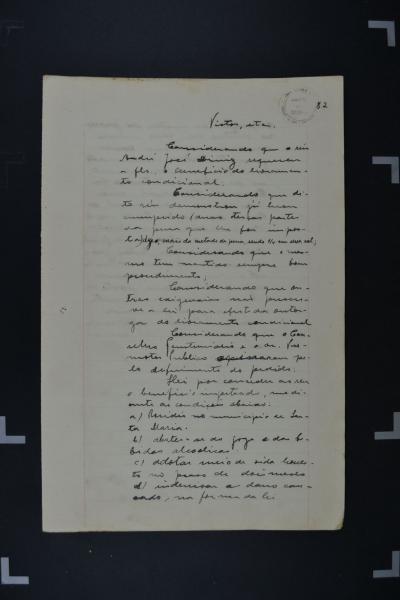 82
Vistos, etc.
Considerando que o réu
André José Diniz requereu
a fls. o beneficio do livramen-
to condicional.
Considerando que di-
to réu demonstrou já haver
cumprido duas terças parte
da pena que lhe foi impos-
ta, mais da metade da pena, sendo
Considerando que o mes-
mo tem mantido sempre bom
procedimento;
Considerando que ou-
tras exigencias não prescre-
ve a lei para efeito da outor-
ga do livramento condicional
Considerando que o Con-
selho Penitenciario e o dr. Pro-
motor Publico opinaram pe-
lo deferimento do pedido:
Hei por conceder ao reu
o beneficio impetrado, medi-
ante as condições abaixo:
a) Residir no municipio de San-
ta Maria.
b) abster-se do jogo e das be-
bidas alcoolicas
c) adotar meio de vida hones-
to no prazo de dois meses
d) indenisar o dano cau-
sado, na forma da lei